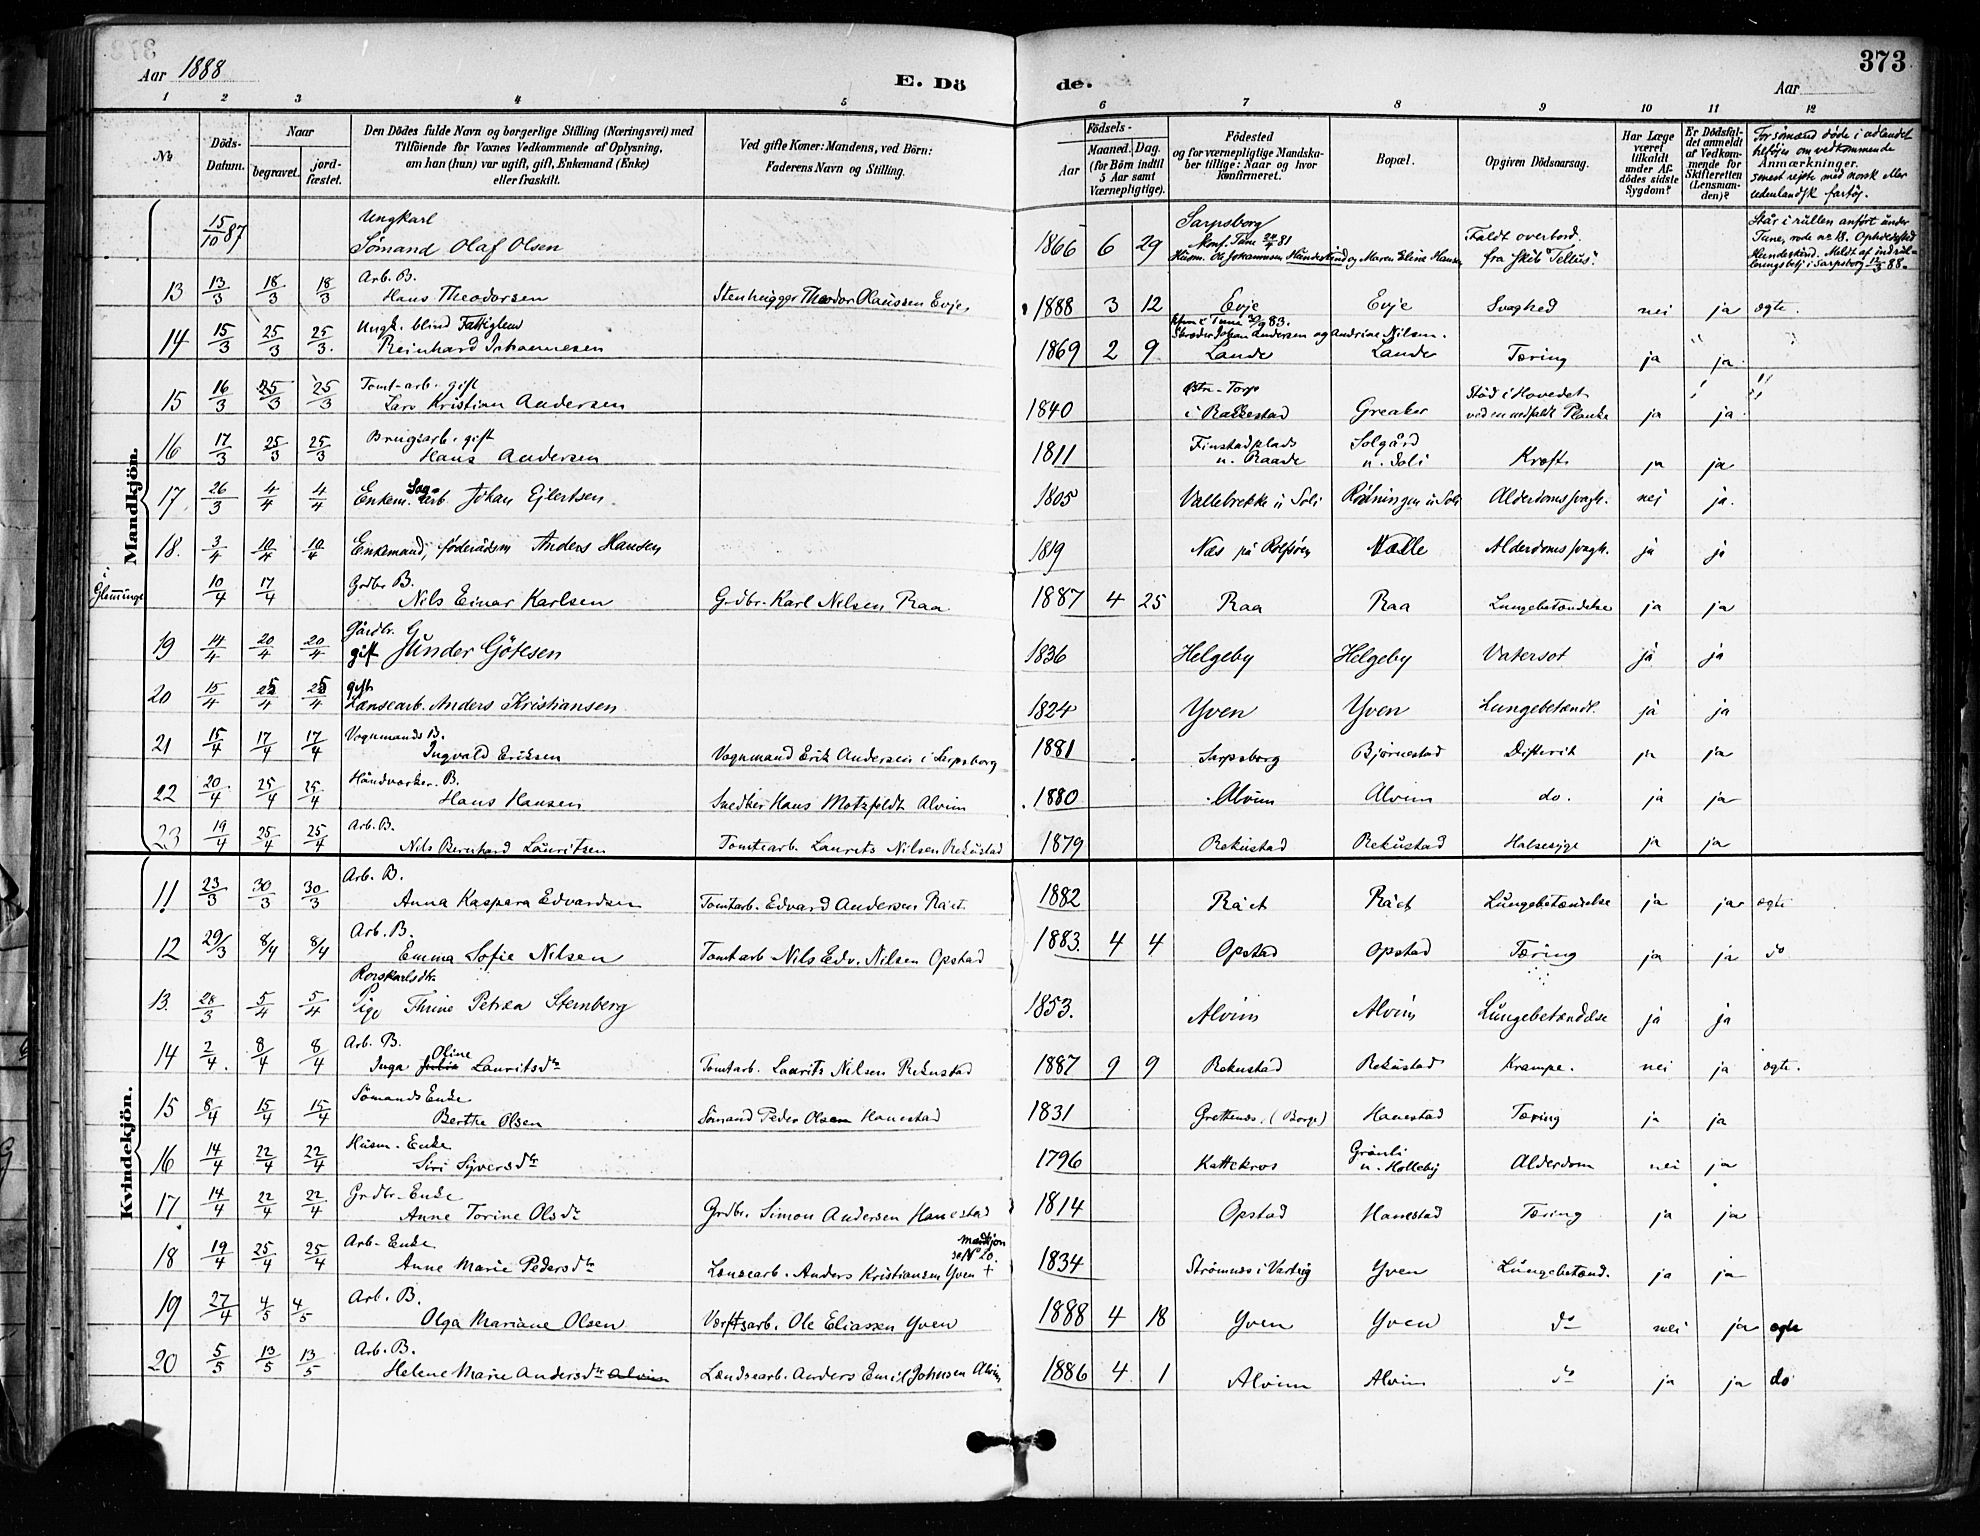 373
Aar 1888
E. Dö
de.
Aar
1 2 3 4 5 6 7 8 9 10 11 12
No
Döds-Datum.
Naar
begravet.
jord-fæstet.
Den Dödes fulde Navn og borgerlige Stilling (Næringsvei) med
Tilföiende for Voxnes Vedkommende af Oplysning,
om han (hun) var ugift, gift, Enkemand (Enke)
eller fraskilt.
Ved gifte Koner: Mandens, ved Börn:
Faderens Navn og Stilling.
Födsels-
Aar
Maaned. Dag.
(for Börn indtil
5 Aar samt
Værnepligtige).
Födested
og for værnepligtige Mandska-
ber tillige: Naar og hvor
konfirmeret.
Bopæl.
Opgiven Dödsaarsag.
Har Læge
været
tilkaldt
under Af-
dödes sidste
Sygdom?
Er Dödsfal-
det anmeldt
af Vedkom-
mende for
Skifteretten
(Lensman-
den)?
For sömænd döde i udlandet
tilföjes om vedkommende
Anmærkninger.
senest rejste med norsk eller
udenlandsk fartöj.
Mandkjön.
15/10 87 Ungkarl
Sömand Olaf Olsen 1866 6 29 Sarpsborg
Konf. Tune 24/4 81
Husm. Ole Johannesen Hundeskind og Maren Eline Hansen
Faldt overbord
fra skib "Tellus".
Står i rullen anfört under
Tune, rode no 18. Opholdssted
Hundeskind. Meldt af indrul-
leringsbetj i Sarpsborg 12/3 88.
13 13/3 18/3 18/3 Arb. B.
Hans Theodorsen Stenhugger Theodor Olaussen Evje 1888 3 12 Evje Evje Svaghed nei ja ægte.
14 15/3 25/3 25/3. Ungk. blind Fattiglem
Reinhard Johannesen 1869 2 9 Konf. i Tune 30/9 83.
Skræder Johan Andersen og Andrine Nilsen.
Lande Lande Tæring ja ja
15 16/3 25/3 25/3 Tomt-arb. gift
Lars Kristian Andersen 1840 Btn-Torp
i Rakkestad Greaker Stöd i Hovedet
ved en nedfaldt Planke ja ja
16 17/3 25/3 25/3 Brugsarb. gift
Hans Andersen 1811 Finstadplads
u. Raade Solgård
u. Soli Kræft ja ja
17 26/3 4/4 4/4 Enkem. Sag-arb Johan Ejlertsen 1805 Vallebrekke u Soli Rödningen u Soli Alderdomssvagh. nej ja.
18. 3/4 10/4 10/4 Enkemand, föderådsm Anders Hansen 1819 Næs på Rolfsöen Nalle Alderdoms svagh. ja ja
i Glemminge 10/4 17/4 Grdbr B.
Nils Einar Karlsen Grdbr. Karl Nilsen Raa 1887 4 25 Raa Raa Lungebetændelse ja ja
19 14/4 20/4 20/4 Gårdbr. G
gift Gunder Götesen 1836 Helgeby Helgeby Vatersot ja ja
20 15/4 25/4 25/4 gift
Lænsearb. Anders Kristiansen 1824 Yven Yven Lungebetændl. ja ja
21 15/4 17/4 17/4 Vognmands B.
Ingvald Eriksen Vognmand Erik Andersen i Sarpsborg 1881 Sarpsborg Bjørnestad Difterit ja ja
22 20/4 25/4 25/4 Håndværker. B.
Hans Hansen Snedker Hans Motzfeldt Alvim 1880 Alvim Alvim do. ja ja
23 19/4 25/4 25/4 Arb. B.
Nils Bernhard Lauritsen Tomtearb. Laurits Nilsen Rekustad 1879 Rekustad Rekustad Halsesyge ja ja
Kvindekjön.
11 23/3 30/3 30/3 Arb. B.
Anna Kaspara Edvardsen Tomtarb. Edvard Andersen Rået 1882 Rået Rået Lungebetændelse ja ja ægte
12 29/3 8/4 8/4 Arb. B.
Emma Sofie Nilsen Tomtarb Nils Edv. Nilsen Opstad 1883. 4 4 Opstad Opstad Tæring ja ja do
13. 28/3 5/4 5/4 Rorskarlsdtr
Pige Thrine Petræa Sternberg 1853. Alvim Alvim Lungebetændelse ja ja
14 2/4 8/4 8/4 Arb. B.
Inga Julie Oline Lauritsdtr Tomtarb. Laurits Nilsen Rekustad 1887 9 9 Rekustad Rekustad Krampe. nei ja ægte.
15 8/4 15/4 15/4 Sömands Enke
Berthe Olsen Sömand Peder Olsen Hanestad 1831 Grettenes. (Borge) Hanestad Tæring ja ja
16 14/4 22/4 22/4 Husm. Enke
Siri Syversdtr 1796 Kattekros Grönli
u. Holleby Alderdom nei ja
17 14/4 22/4 22/4 Grdbr-Enke
Anne Torine Olsdtr Grdbr. Simon Andersen Hanestad 1814 Opstad Hanestad Tæring ja ja
18 19/4 25/4 25/4 Arb-Enke
Anne Marie Pedersdtr Lænsearb. Anders Kristiansen Yven +
mandkjön
se No 20. 1834 Strömnes i Varteig Yven Lungebetænd. ja ja
19 27/4 4/5 4/5 Arb. B.
Olga Mariane Olsen Værftsarb. Ole Eliassen Yven 1888 4 18 Yven Yven do nei ja ægte
20 5/5 13/5 13/5 Arb. B.
Helene Marie Andersdtr Alvim Lændsearb. Anders Emil Johnsen Alvim 1886 4 1 Alvim Alvim do ja ja do